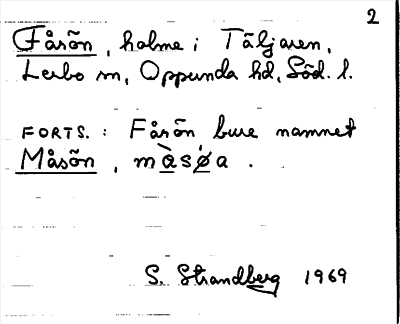 2
Fårön, holme i Täljaren,
Lerbo sn, Oppunda hd, Söd. l.
FORTS.: Fårön bure namnet
Måsön, mὰsǿa.
S. Strandberg 1969